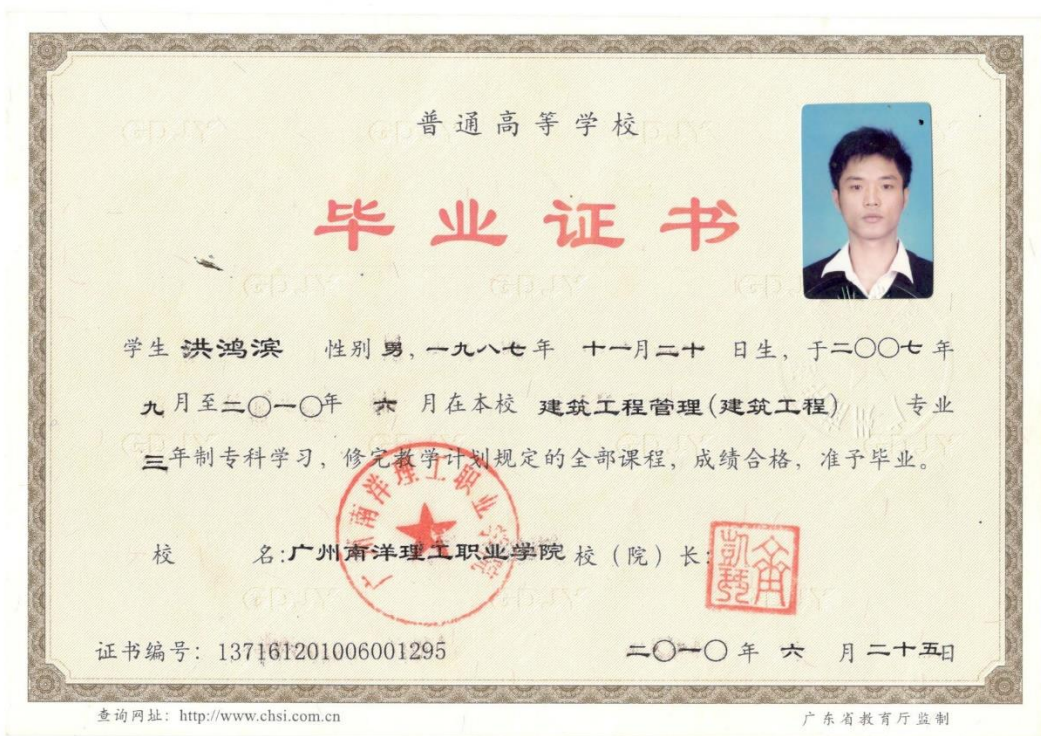 普通高等学校
毕业证书
学生 洪鸿滨 性别 男, 一九八七年 十一月二十 日生, 于二〇〇七 年
九 月至二〇一〇年 六 月在本校 建筑工程管理(建筑工程) 专业
三年制专科学习, 修完教学计划规定的全部课程, 成绩合格, 准予毕业。
广州南洋理工职业学院
校 名:广州南洋理工职业学院 校(院)长:
证书编号: 137161201006001295 二〇一〇 年 六 月 二十五日
查询网址: http://www.chsi.com.cn 广东省教育厅监制